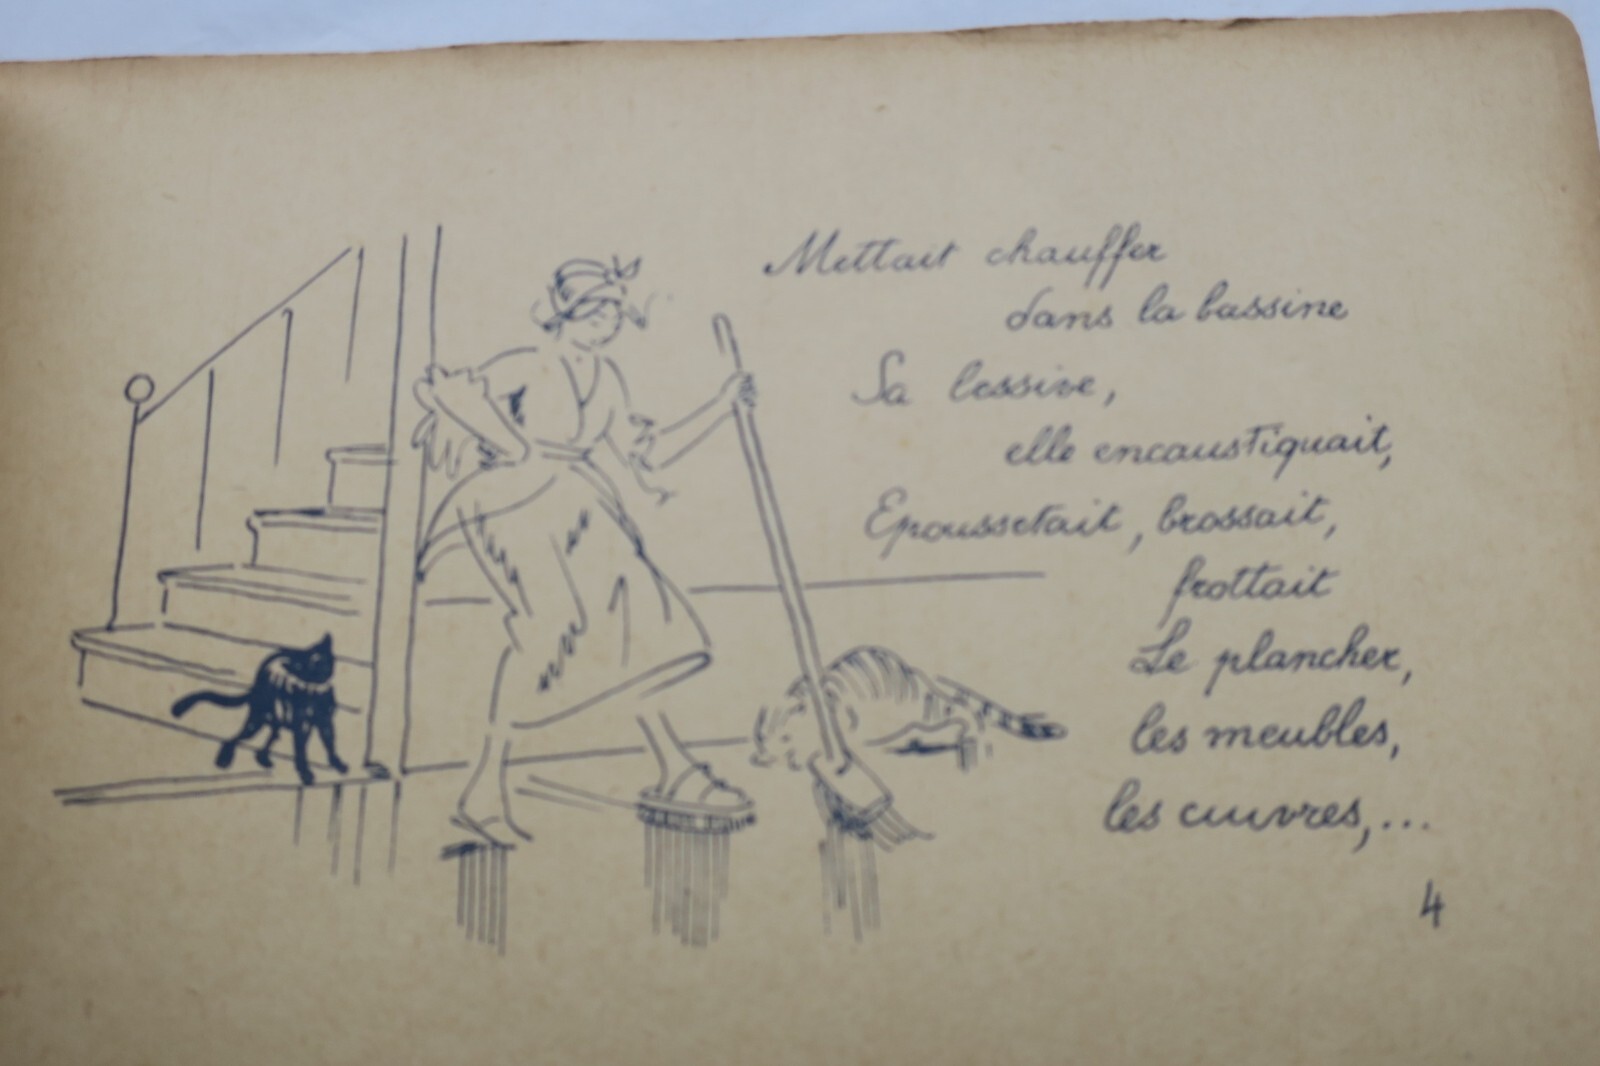 Mettait chauffer
dans la bassine
Sa lessive,
elle encaustiquait,
Epoussetait, brossait,
frottait
Le plancher,
les meubles,
les cuivres,...
4